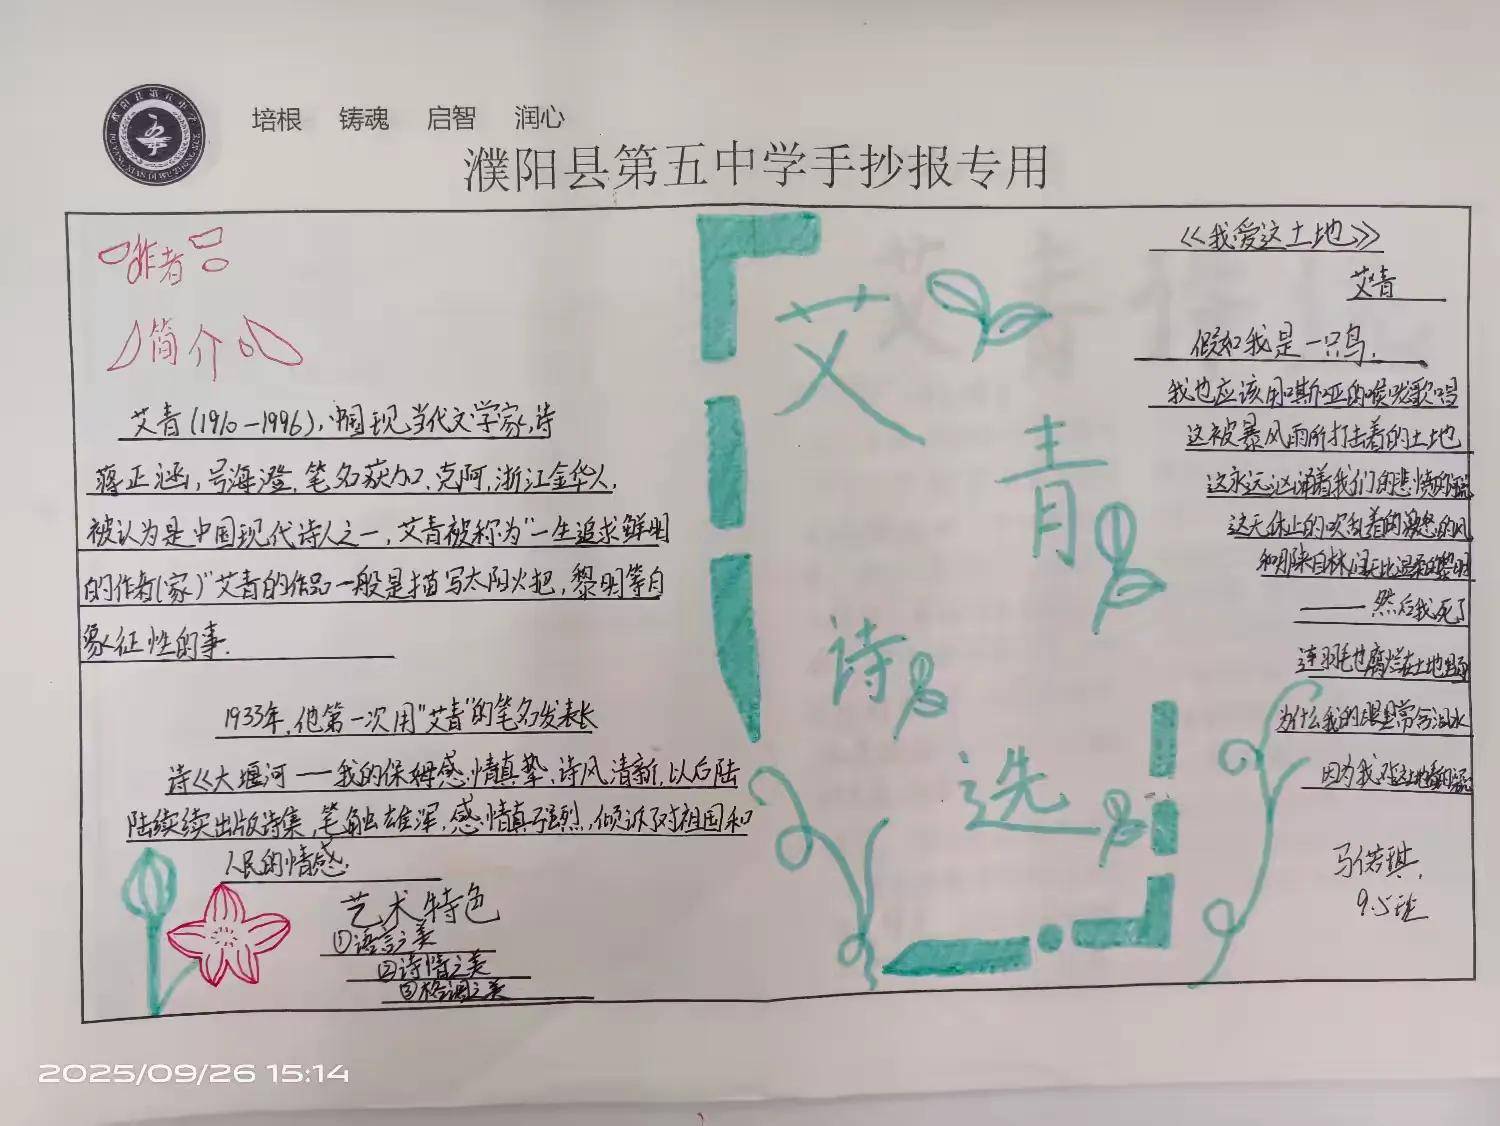 培根 铸魂 启智 润心
濮阳县第五中学手抄报专用
作者
简介
艾青(1910-1996),中国现当代文学家,诗
蒋正涵,号海澄,笔名莪加、克阿,浙江金华人,
被认为是中国现代诗人之一,艾青被称为“一生追求鲜明
的作者(家)”艾青的作品一般是描写太阳火把,黎明等自
象征性的事.
1933年,他第一次用“艾青”的笔名发表长
诗《大堰河——我的保姆感情真挚,诗风清新,以后陆
陆续续出版诗集,笔触雄浑,感情真强烈,倾诉了对祖国和
人民的情感.
艺术特色
①语言之美
②诗情之美
③格调之美
艾
青
诗
选
《我爱这土地》
艾青
假如我是一只鸟,
我也应该用嘶哑的喉咙歌唱
这被暴风雨所打击着的土地
这永远汹涌着我们的悲愤的河流
这无休止的吹刮着的激怒的风
和那来自林间无比温柔的黎明
——然后我死了
连羽毛也腐烂在土地里面
为什么我的眼里常含泪水
因为我对这土地
马偌琪.
9.5班
2025/09/26 15:14